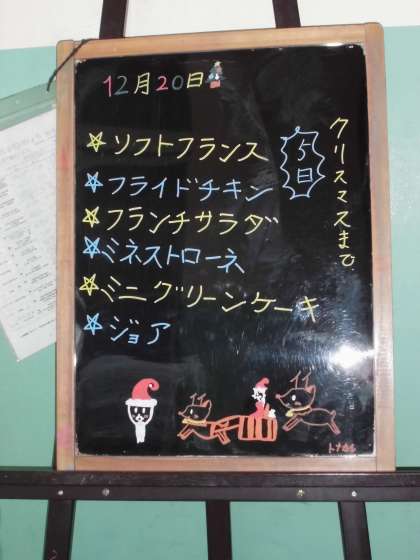 12月20日
クリスマスまで
5日
☆ソフトフランス
☆フライドチキン
☆フランチサラダ
☆ミネストローネ
☆ミニグリーンケーキ
☆ジョア
トナカイ